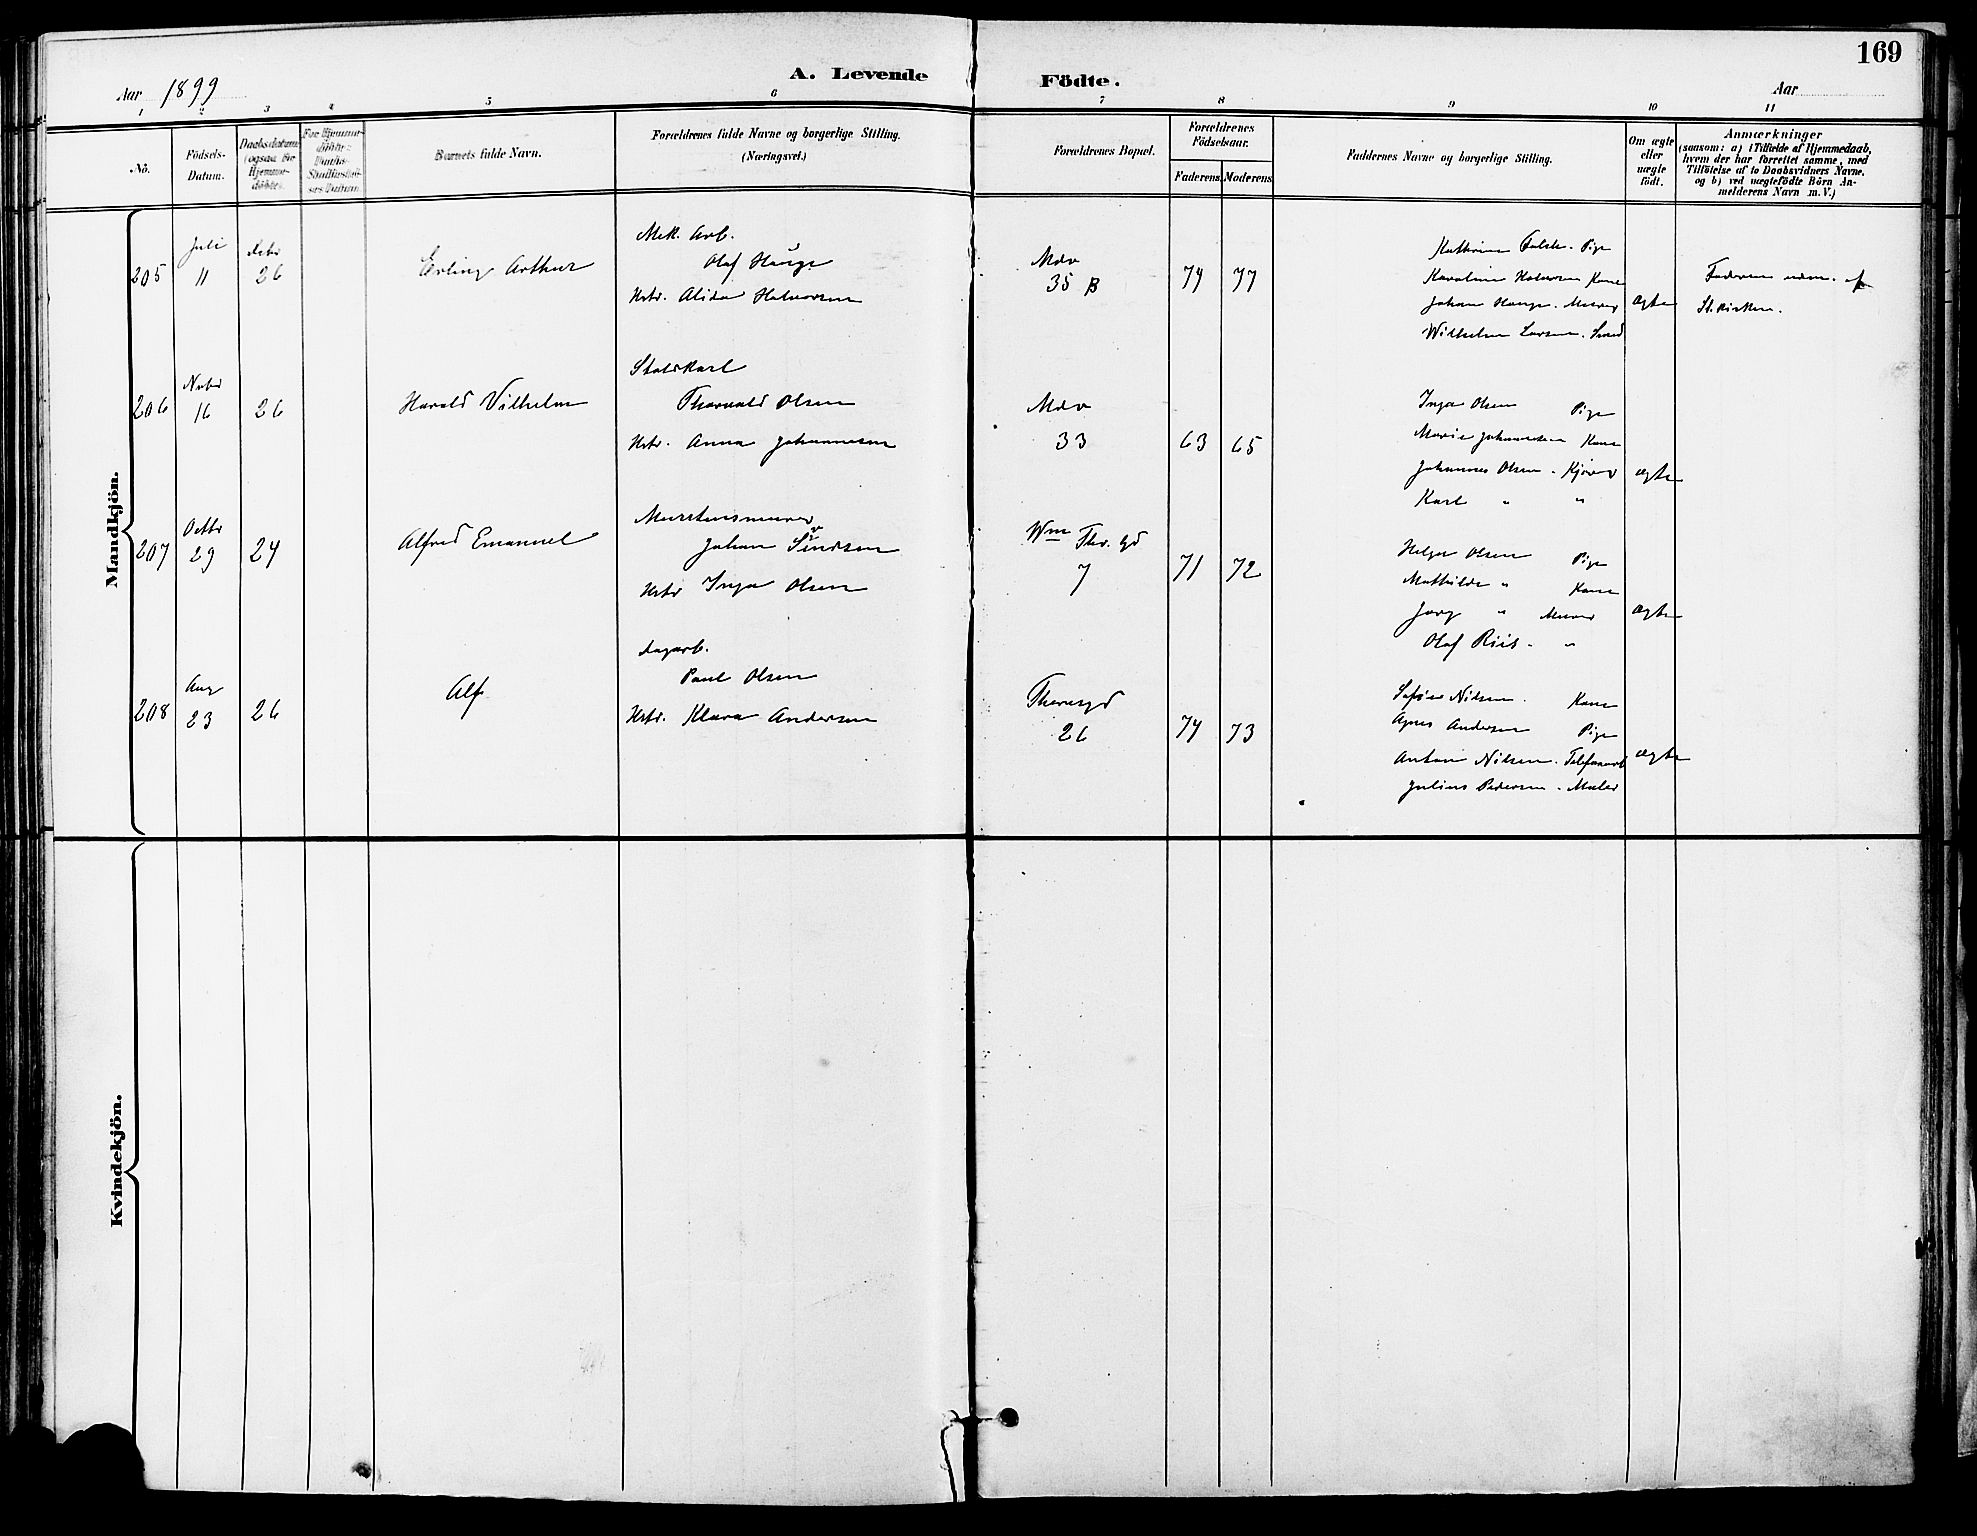 169
A. Levende Födte.
Aar 1899
Aar
1 2 3 4 5 6 7 8 9 10 11
Nö.
Födsels-Datum.
Daabsdatum (ogsaa for Hjemme-döbte).
Barnets fulde Navn.
Forældrenes fulde Navne og borgerlige Stilling.
(Næringsvei.)
Forældrenes Bopæl.
Forældrenes Födselsaar.
Faderens. Moderens.
Faddernes Navne og borgerlige Stilling.
Om ægte eller uægte födt.
Anmærkninger
(saasom: a) i Tilfælde af Hjemmedaab,
hvem der har forrettet samme, med
Tilföielse af to Daabsvidners Navne.
og b) ved uægtefödte Börn An-
melderens Navn m. V.)
Mandkjön.
205
Juli 11
Debr 26
Erling Arthur
Mek. Arb.
Olaf Hauge
Hstr. Alida Halvorsen
Mdv
35 B
74 77
Kathrine Falch. Pige
Karoline Halvorsen Kone
Johan Hauge. Murer
Wilhelm Larsen. Smed
ægte
Faderen udm. af
St.kirken.
206
Nvbr 16
26
Harald Vilhelm
Staldkarl
Thorvald Olsen
Hstr. Anna Johannesen
Mdv
33
63 65
Inga Olsen Pige
Marie Johannesen Kone
Johannes Olsen. Kjører
Karl " "
ægte
207
Octbr 29
24
Alfred Emanuel
Murstensmurer
Johan
Hstr Inga Olsen
Wm Thr. gd
7
71 72
Helga Olsen Pige
Mathilde " Kone
" Murer
Olaf Riis. "
ægte
208
Aug 23
26
Alf
Dagarb.
Paul Olsen
Hstr. Klara Andersen
Theresgd
26
74 73
Nilsen. Kone
Agnes Andersen Pige
Anton Nilsen. Telefonarb
Julius Pedersen. Maler
ægte
Kvindekjön.